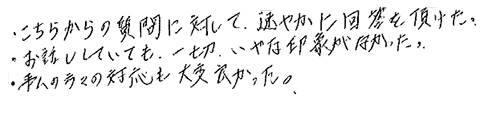 ・こちらからの質問に対して、速やかに回答を頂けた。
・お話ししていても、一切、いやな印象がなかった。
・の方々の対応も大変良かった。